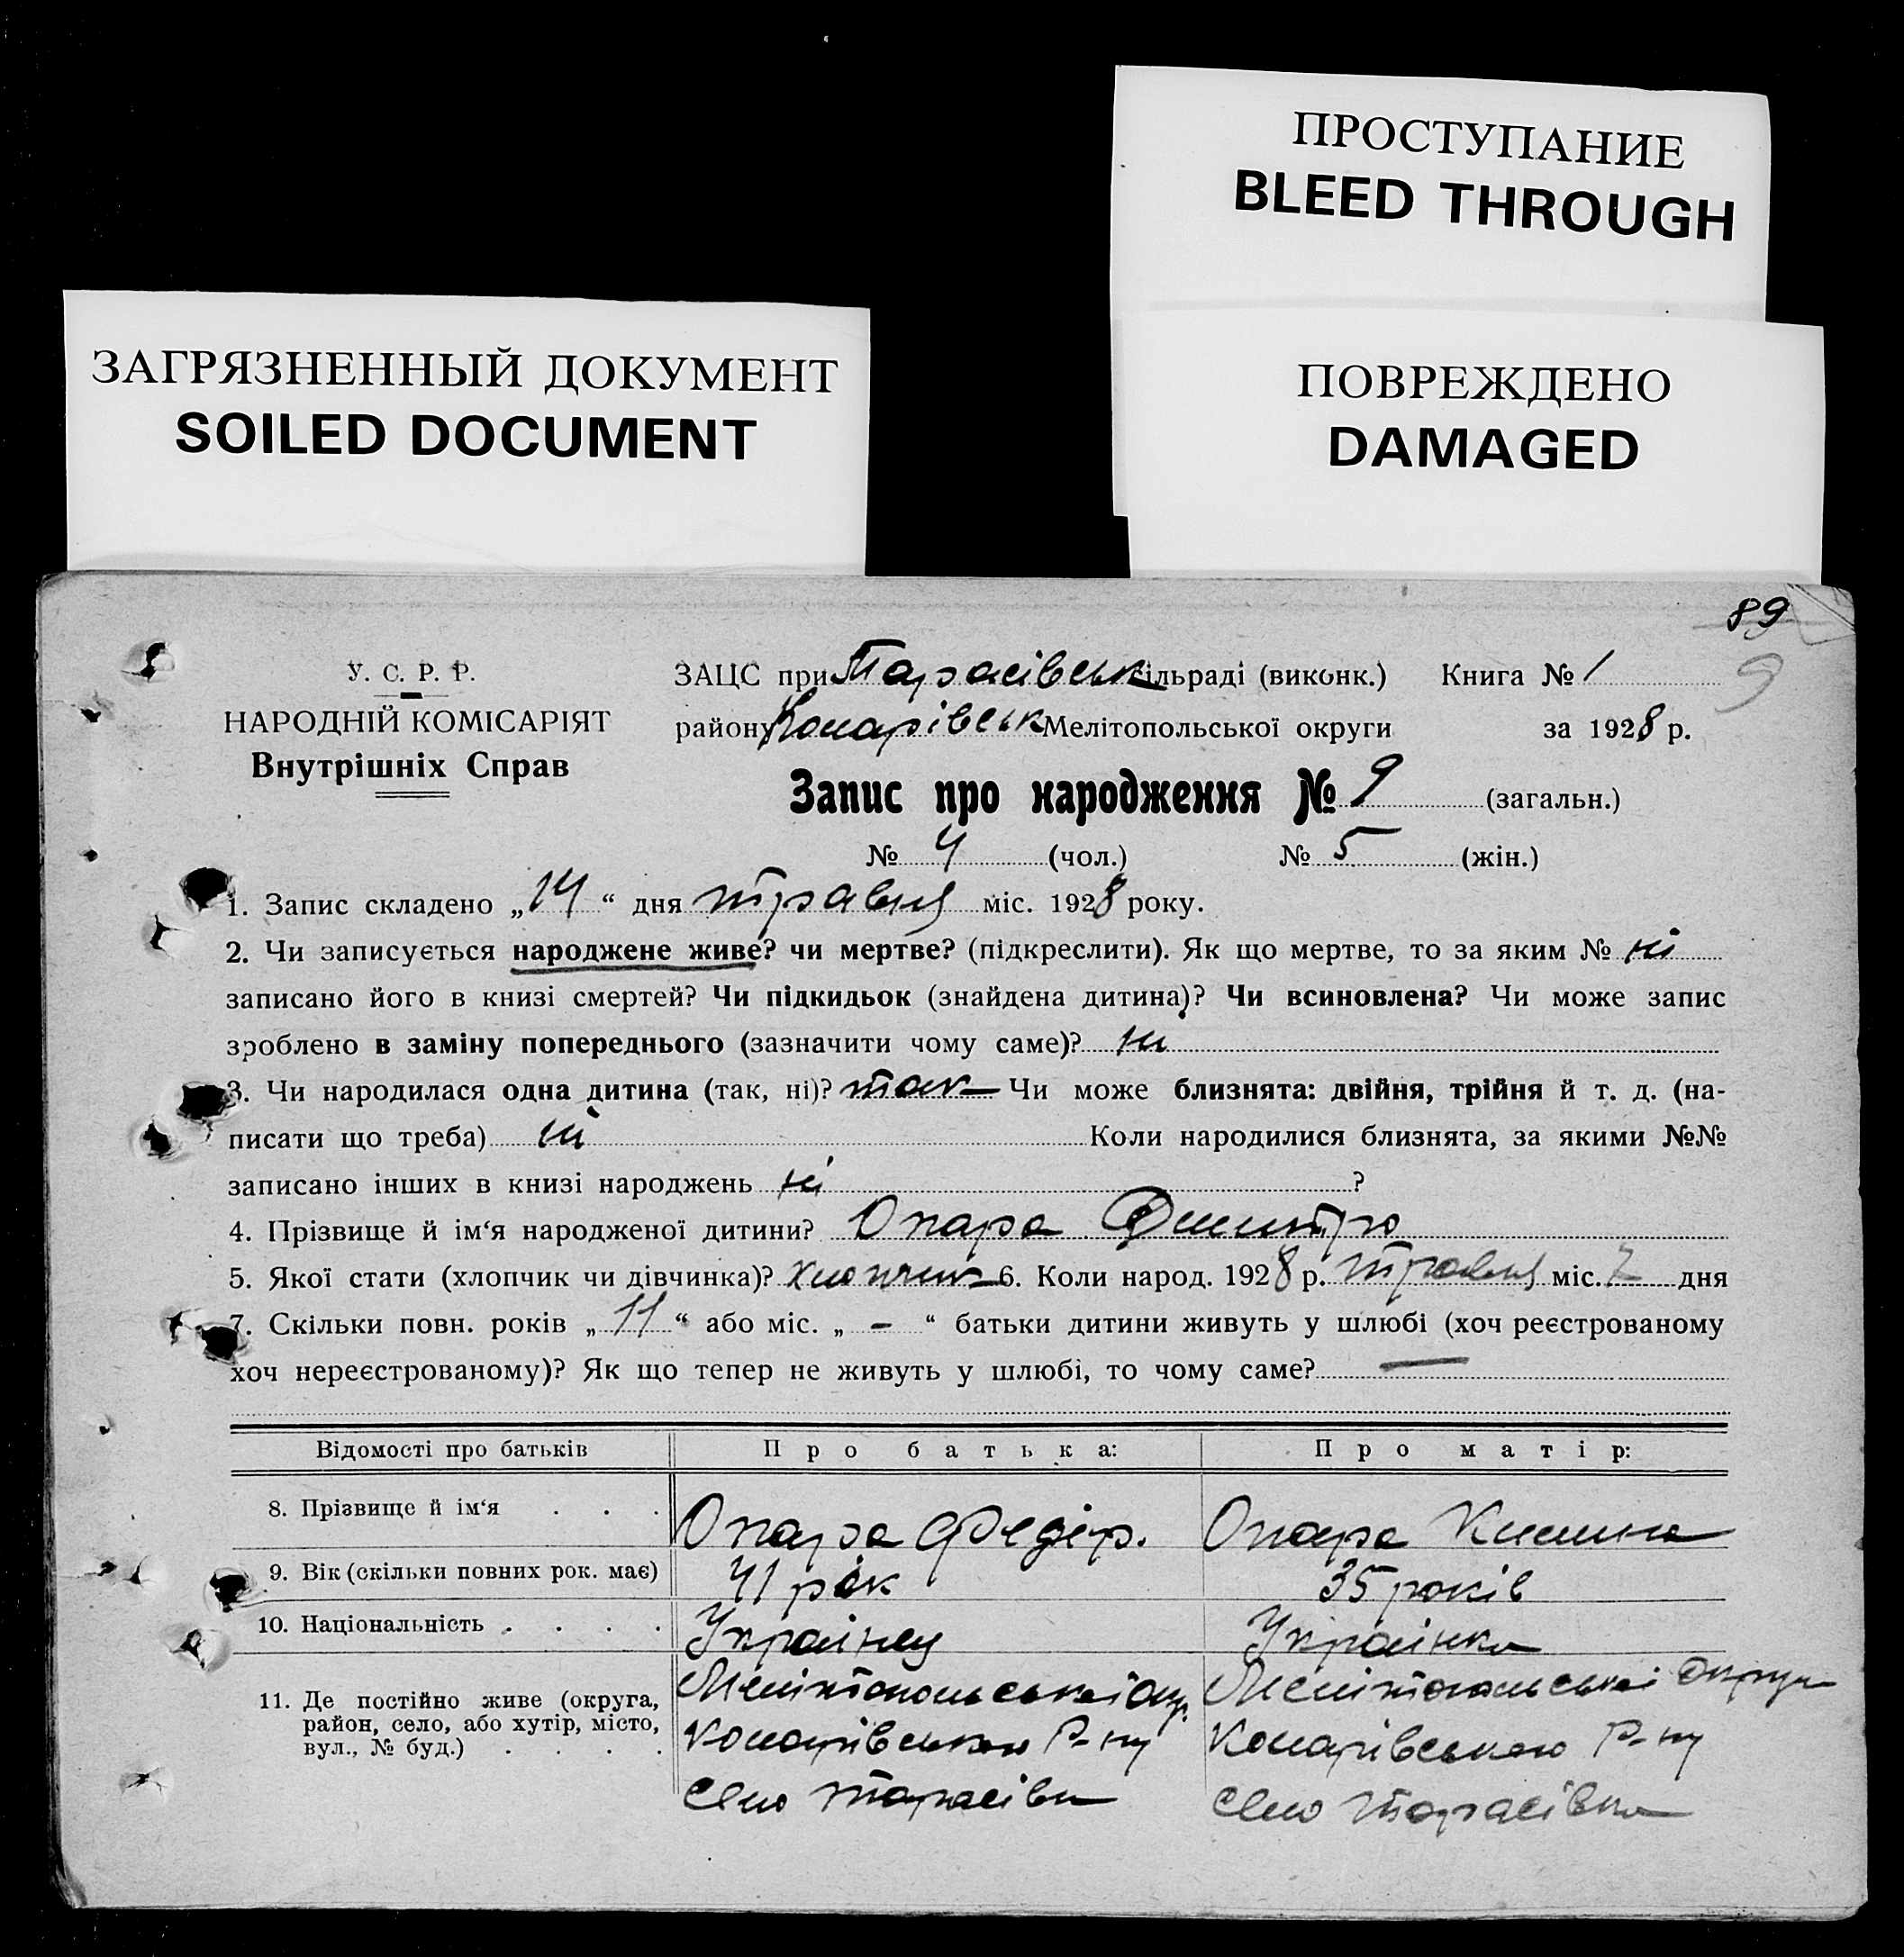 ПРОСТУПАНИЕ
BLEED THROUGH
ЗАГРЯЗНЕННЫЙ ДОКУМЕНТ
SOILED DOCUMENT
ПОВРЕЖДЕНО
DAMAGED
89
9
У. С. Р. Р.
НАРОДНІЙ КОМІСАРІЯТ
Внутрішніх Справ
ЗАЦС при Тарасівськ сільраді (виконк.) Книга № 1
району Комарівськ Мелітопольської округи за 1928 р.
Запис про народження № 9 (загальн.)
№ 4 (чол.) № 5 (жін.)
1. Запис складено „14“ дня травня міс. 1928 року.
2. Чи записується народжене живе? чи мертве? (підкреслити). Як що мертве, то за яким № ні
записано його в книзі смертей? Чи підкидьок (знайдена дитина)? Чи всиновлена? Чи може запис
зроблено в заміну попереднього (зазначити чому саме)? ні
3. Чи народилася одна дитина (так, ні)? так Чи може близнята: двійня, трійня й т. д. (на-
писати що треба) ні Коли народилися близнята, за якими №№
записано інших в книзі народжень ні ?
4. Прізвище й ім‘я народженої дитини? Опара Дмитро
5. Якої стати (хлопчик чи дівчинка)? хлопчик 6. Коли народ. 1928 р. травня міс. 7 дня
7. Скільки повн. років „11“ або міс. „-“ батьки дитини живуть у шлюбі (хоч реєстрованому
хоч нереєстрованому)? Як що тепер не живуть у шлюбі, то чому саме? —
Відомості про батьків Про батька: Про матір:
8. Прізвище й ім‘я . . . Опара Федір. Опара
9. Вік (скільки повних рок. має) 41 рік 35 років
10. Національність . . . . Українец Українка
11. Де постійно живе (округа, район, село, або хутір, місто, вул., № буд.) . . . .
Мелітопольської окр. Мелітопольської округи
Комарівського Р-ну Комарівського Р-ну
село Тарасівка село Тарасівка